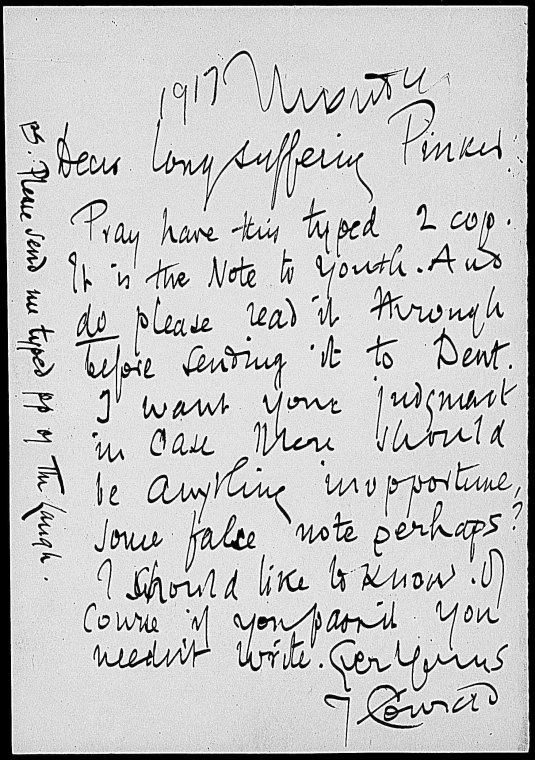 1917
Dear long suffering Pinker.
Pray have this typed 2 cop.
It is the Note to Youth. And
do please read it through
before sending it to Dent.
I want your judgment
in case there should
be anything inopportune,
some false note perhaps?
I should like to know. Of
course if you pass it you
needn't write. Ever Yours
J Conrad
PS. Please send me typed pp of The Laugh.